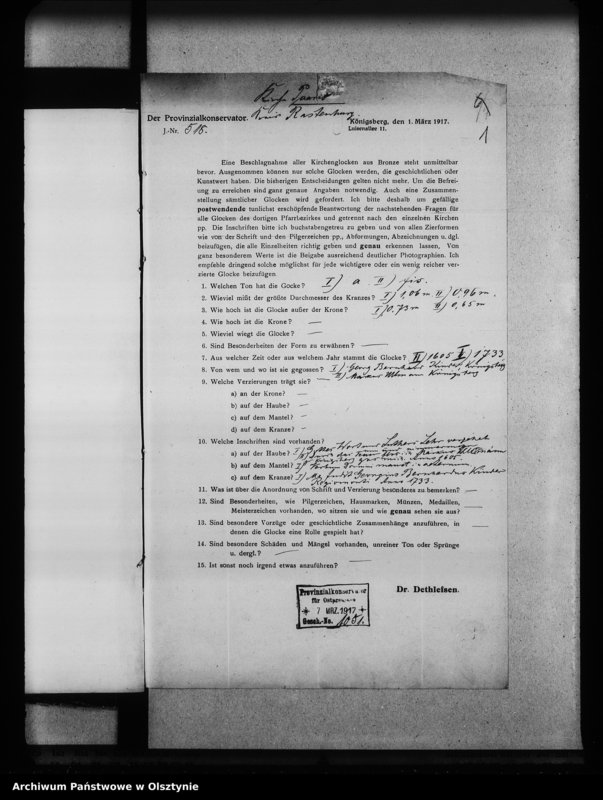 Der Provinzialkonservator.
Kreis Rastenburg.
J.-Nr. 518.
Königsberg, den 1. März 1917.
Luisenallee 11.
1
Eine Beschlagnahme aller Kirchenglocken aus Bronze steht unmittelbar
bevor. Ausgenommen können nur solche Glocken werden, die geschichtlichen oder
Kunstwert haben. Die bisherigen Entscheidungen gelten nicht mehr. Um die Befrei-
ung zu erreichen sind ganz genaue Angaben notwendig. Auch eine Zusammen-
stellung sämtlicher Glocken wird gefordert. Ich bitte deshalb um gefällige
postwendende tunlichst erschöpfende Beantwortung der nachstehenden Fragen für
alle Glocken des dortigen Pfarrbezirkes und getrennt nach den einzelnen Kirchen
pp. Die Inschriften bitte ich buchstabengetreu zu geben und von allen Zierformen
wie von der Schrift und den Pilgerzeichen pp., Abformungen, Abzeichnungen u. dgl.
beizufügen, die alle Einzelheiten richtig geben und genau erkennen lassen. Von
ganz besonderem Werte ist die Beigabe ausreichend deutlicher Photographien. Ich
empfehle dringend solche möglichst für jede wichtigere oder ein wenig reicher ver-
zierte Glocke beizufügen.
1. Welchen Ton hat die Gocke? I) a II) fis.
2. Wieviel mißt der größte Durchmesser des Kranzes? I) 1,06 m II) 0,96 m.
3. Wie hoch ist die Glocke außer der Krone? I) 0,73 m II) 0,65 m
4. Wie hoch ist die Krone? —
5. Wieviel wiegt die Glocke? —
6. Sind Besonderheiten der Form zu erwähnen? —
7. Aus welcher Zeit oder aus welchem Jahr stammt die Glocke? II) 1605 I) 1733
8. Von wem und wo ist sie gegossen? I) Georg Bernhard Kinder, Königsberg
II) Königsberg
9. Welche Verzierungen trägt sie? —
a) an der Krone? —
b) auf der Haube? —
c) auf dem Mantel? —
d) auf dem Kranze? —
10. Welche Inschriften sind vorhanden? I) Gottes Wort und Luthers Lehr vergehet
a) auf der Haube?
Anno 1605.
b) auf dem Mantel?
c) auf dem Kranze? I) Me fudit Georgius Bernhardus Kinder
Regiomonti Anno 1733.
11. Was ist über die Anordnung von Schrift und Verzierung besonderes zu bemerken? —
12. Sind Besonderheiten, wie Pilgerzeichen, Hausmarken, Münzen, Medaillen,
Meisterzeichen vorhanden, wo sitzen sie und wie genau sehen sie aus? —
13. Sind besondere Vorzüge oder geschichtliche Zusammenhänge anzuführen, in
denen die Glocke eine Rolle gespielt hat? —
14. Sind besondere Schäden und Mängel vorhanden, unreiner Ton oder Sprünge
u. dergl.? —
15. Ist sonst noch irgend etwas anzuführen? —
Dr. Dethlefsen.
Provinzialkonservator
für Ostpreussen
7 MRZ. 1917
Gesch.-No. 1051.
Archiwum Państwowe w Olsztynie